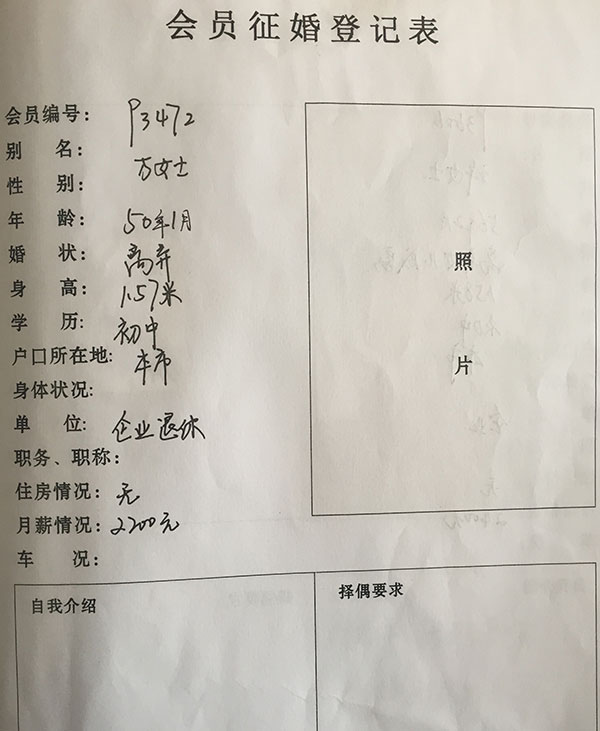 会员征婚登记表
会员编号: P3472
别 名: 方女士
性 别:
年 龄: 50年1月
婚 状: 离弃
身 高: 1.57米
学 历: 初中
户口所在地: 本市
身体状况:
单 位: 企业退休
职务、职称:
住房情况: 无
月薪情况: 2200元
车 况:
照
片
自我介绍
择偶要求